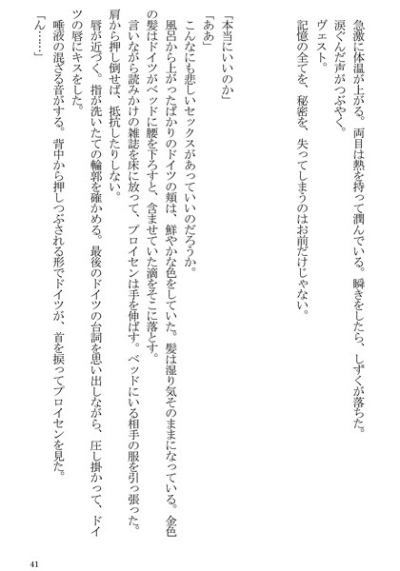 急激に体温が上がる。両目は熱を持って潤んでいる。瞬きをしたら、しずくが落ちた。
涙ぐんだ声がつぶやく。
ヴェスト。
記憶の全てを、秘密を、失ってしまうのはお前だけじゃない。
「本当にいいのか」
「ああ」
こんなにも悲しいセックスがあっていいのだろうか。
風呂から上がったばかりのドイツの頬は、鮮やかな色をしていた。髪は湿り気そのままになっている。金色
の髪はドイツがベッドに腰を下ろすと、含ませていた滴をそこに落とす。
言いながら読みかけの雑誌を床に放って、プロイセンは手を伸ばす。ベッドにいる相手の服を引っ張った。
肩から押し倒せば、抵抗したりしない。
唇が近づく。指が洗いたての輪郭を確かめる。最後のドイツの台詞を思い出しながら、圧し掛かって、ドイ
ツの唇にキスをした。
唾液の混ざる音がする。背中から押しつぶされる形でドイツが、首を捩ってプロイセンを見た。
「ん……」
41